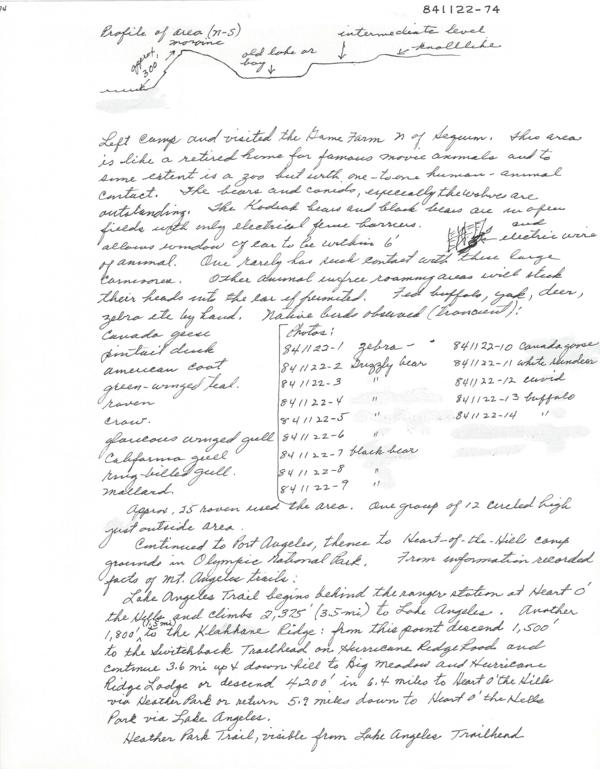 74
841122-74
Profile of area (n-S)
moraine
approx.
300
old lake or
bay
intermediate level
knoll like
Left camp and visited the Game Farm N of Sequim. This area
is like a retired home for famous movie animals and to
some extent is a zoo but with one-to-one human-animal
contact. The bears and canids, especially the wolves are
outstanding. The Kodiak bears and black bears are in open
fields with only electrical fence barriers. and
allows window of car to be within 6' electric wire
of animal. One rarely has such contact with these large
carnivores. Other animal in free roaming areas will stick
their heads into the car if permitted. Fed buffalo, yak, deer,
zebra etc by hand. Native birds observed (transient):
Canada geese
pintail duck
american coot
green-winged teal.
raven
crow.
glaucous winged gull
California gull
ring-billed gull.
Mallard.
Photos:
841122-1 zebra -
841122-2 Grizzly bear
841122-3 "
841122-4 "
841122-5 "
841122-6 "
841122-7 black bear
841122-8 "
841122-9 "
841122-10 Canada goose
841122-11 white reindeer
841122-12 cuvid
841122-13 buffalo
841122-14 "
Approx. 25 raven used the area. One group of 12 circled high
just outside area.
Continued to Port Angeles, thence to Heart-of-the-Hills camp
grounds in Olympic National Park. From information recorded
facts of Mt. Angeles trails:
Lake Angeles Trail begins behind the ranger station at Heart O'
the Hills and climbs 2,375' (3.5 mi) to Lake Angeles. Another
1,800' to the Klahhane Ridge: from this point descend 1,500'
to the Switchback Trailhead on Hurricane Ridge Road and
continue 3.6 mi up & down hill to Big Meadow and Hurricane
Ridge Lodge or descend 4200' in 6.4 miles to Heart O' the Hills
via Heather Park or return 5.9 miles down to Heart O' the Hills
Park via Lake Angeles.
Heather Park Trail, visible from Lake Angeles Trailhead